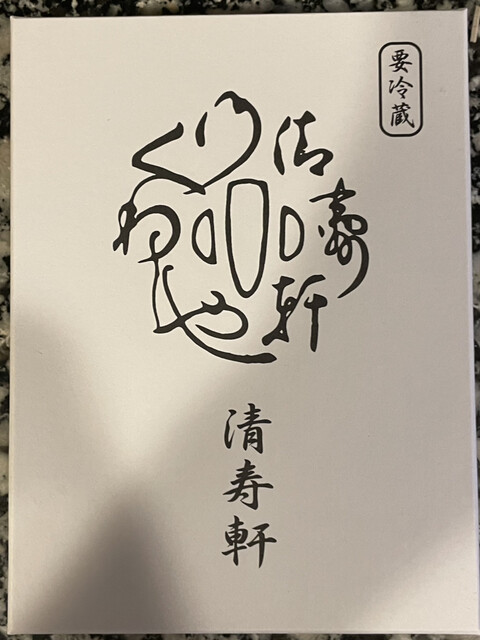 要冷蔵
清壽軒
くわしや
清寿軒